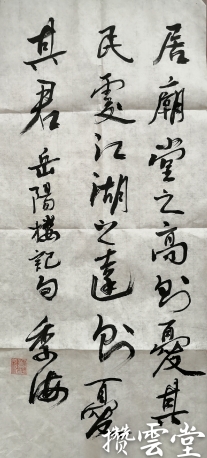 居廟堂之高則憂其
民處江湖之遠則憂
其君 岳陽樓記句 季海
攢雲堂